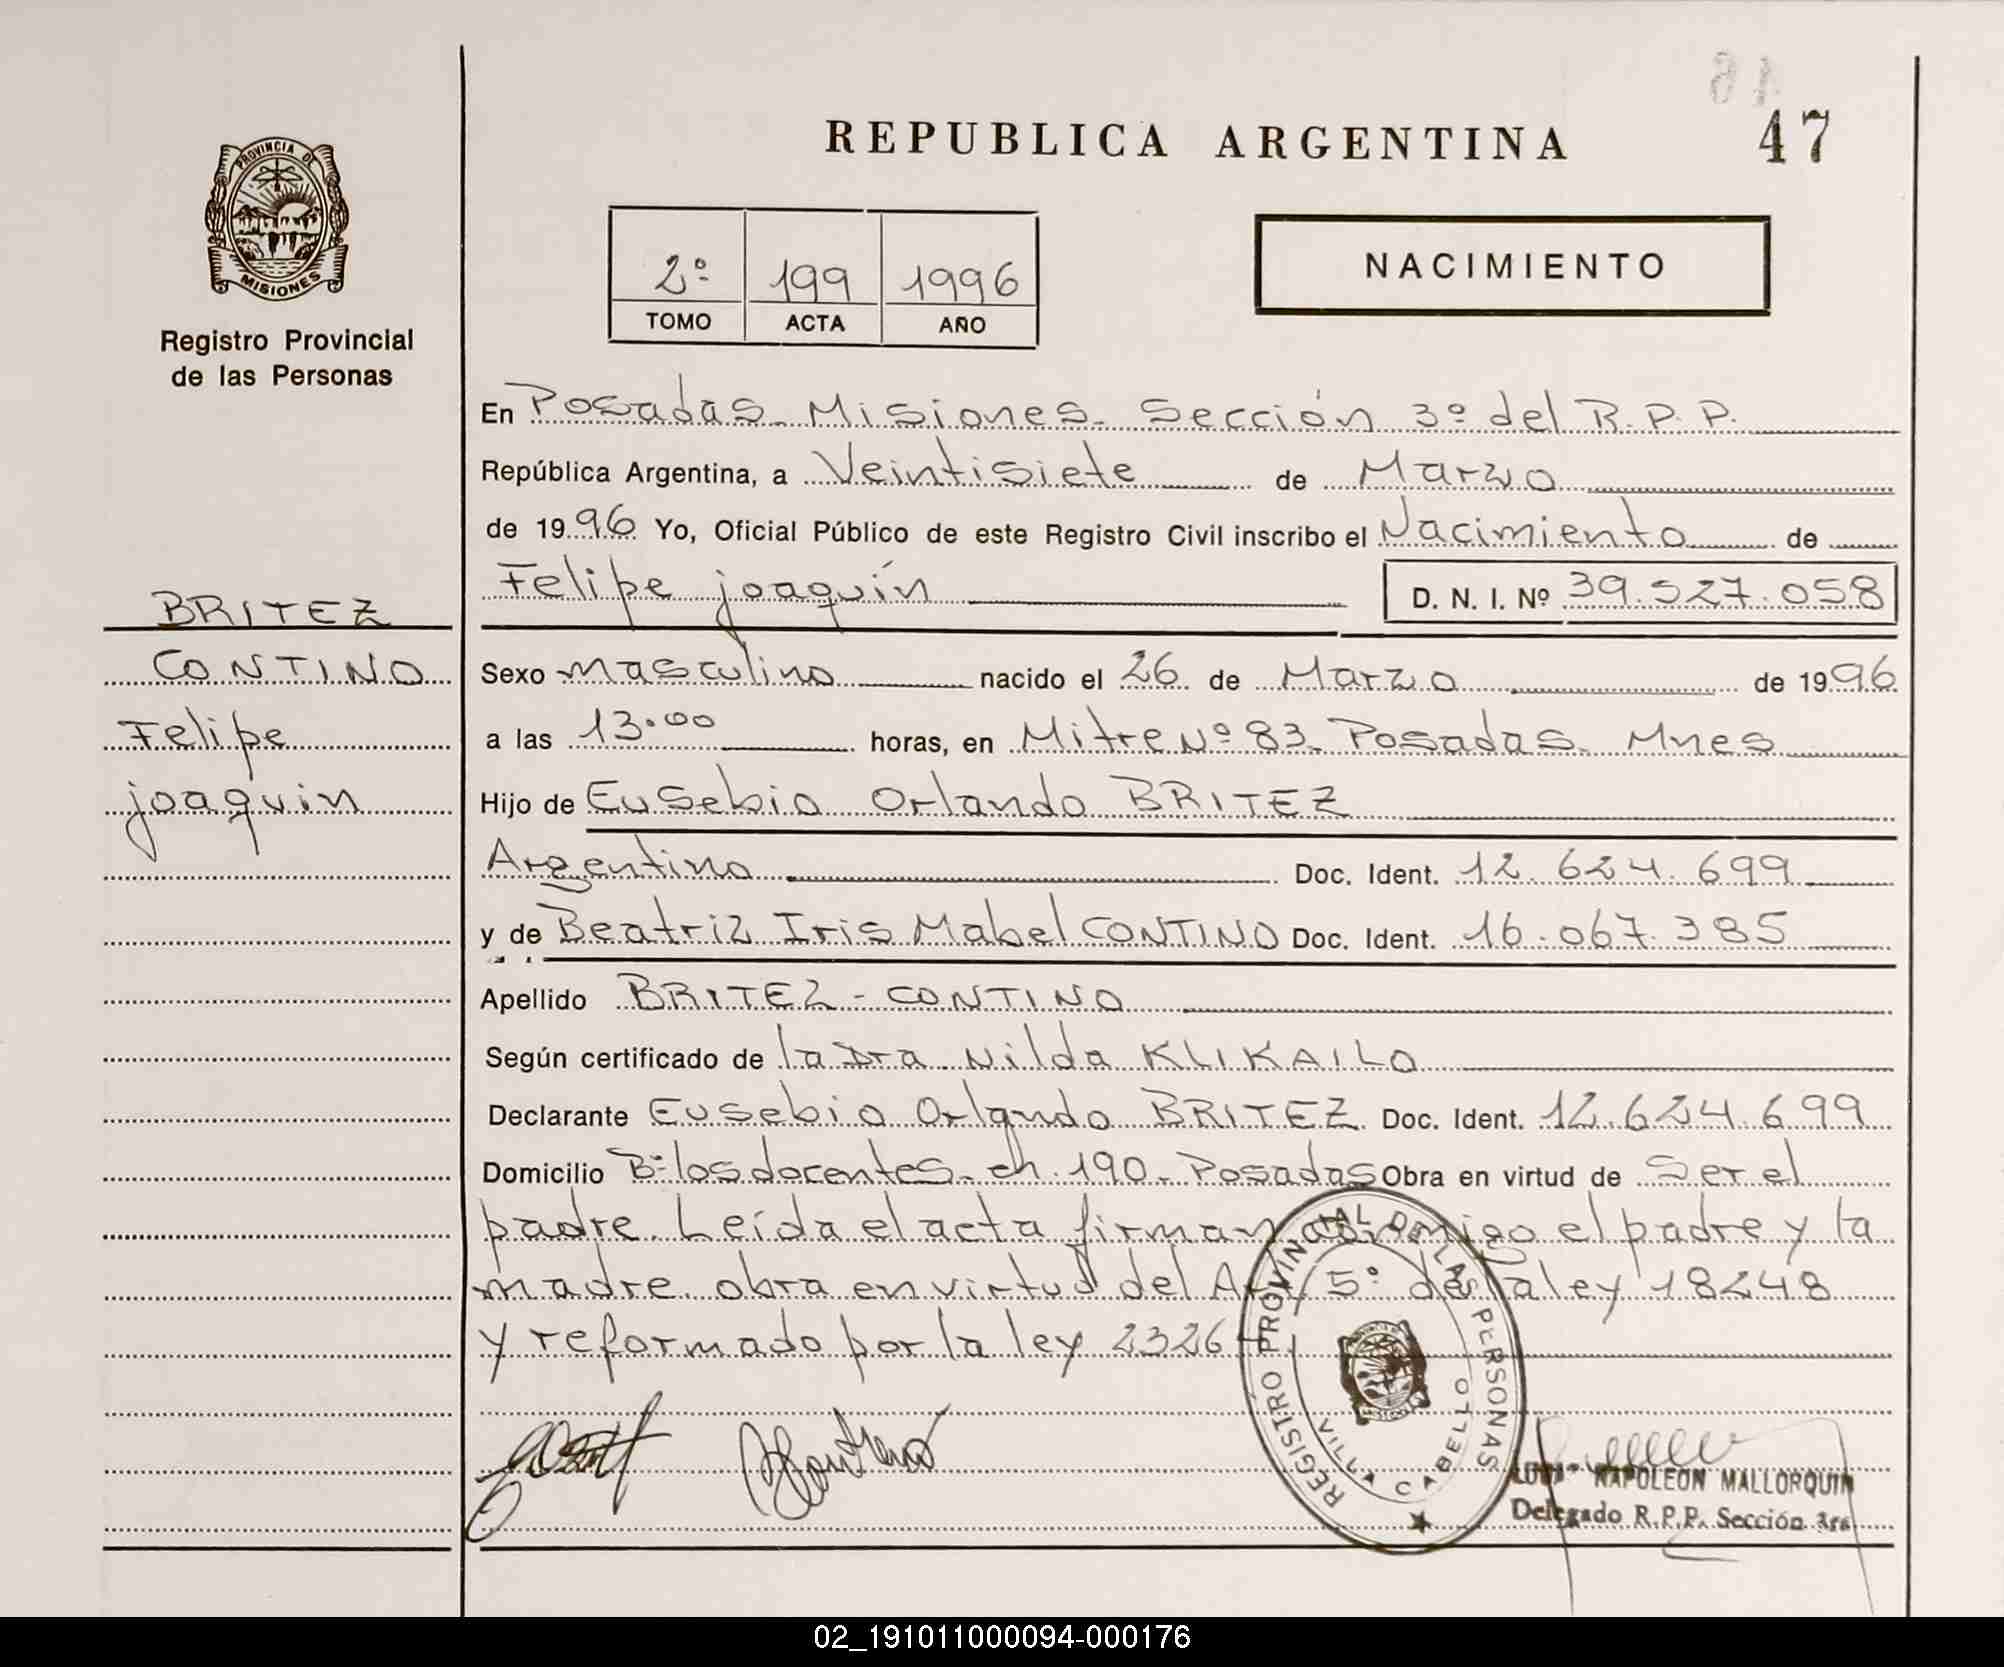 47
REPUBLICA ARGENTINA
PROVINCIA DE
MISIONES
Registro Provincial
de las Personas
2º 199 1996
TOMO ACTA AÑO
NACIMIENTO
En Posadas - Misiones - Sección 3º del R.P.P.
República Argentina, a Veintisiete de Marzo
de 1996 Yo, Oficial Público de este Registro Civil inscribo el Nacimiento de
Felipe joaquín D. N. I. Nº 39.527.058
BRITEZ
CONTINO
Felipe
joaquin
Sexo masculino nacido el 26 de Marzo de 1996
a las 13.00 horas, en Mitre Nº 83 - Posadas - Mnes
Hijo de Eusebio Orlando BRITEZ
Argentino Doc. Ident. 12.624.699
y de Beatriz Iris Mabel CONTINO Doc. Ident. 16.067.385
Apellido BRITEZ - CONTINO
Según certificado de la Dra Nilda KLIKAILO
Declarante Eusebio Orlando BRITEZ Doc. Ident. 12.624.699
Domicilio Bº los docentes - ch. 190 - Posadas Obra en virtud de Ser el
padre. Leída el acta firman conmigo el padre y la
madre. obra en virtud del Art 5º de la ley 18248
y reformado por la ley 2326
REGISTRO PROVINCIAL DE LAS PERSONAS
VILLA CABELLO
NAPOLEON MALLORQUIN
Delegado R.P.P. Sección 3ra
02_191011000094-000176